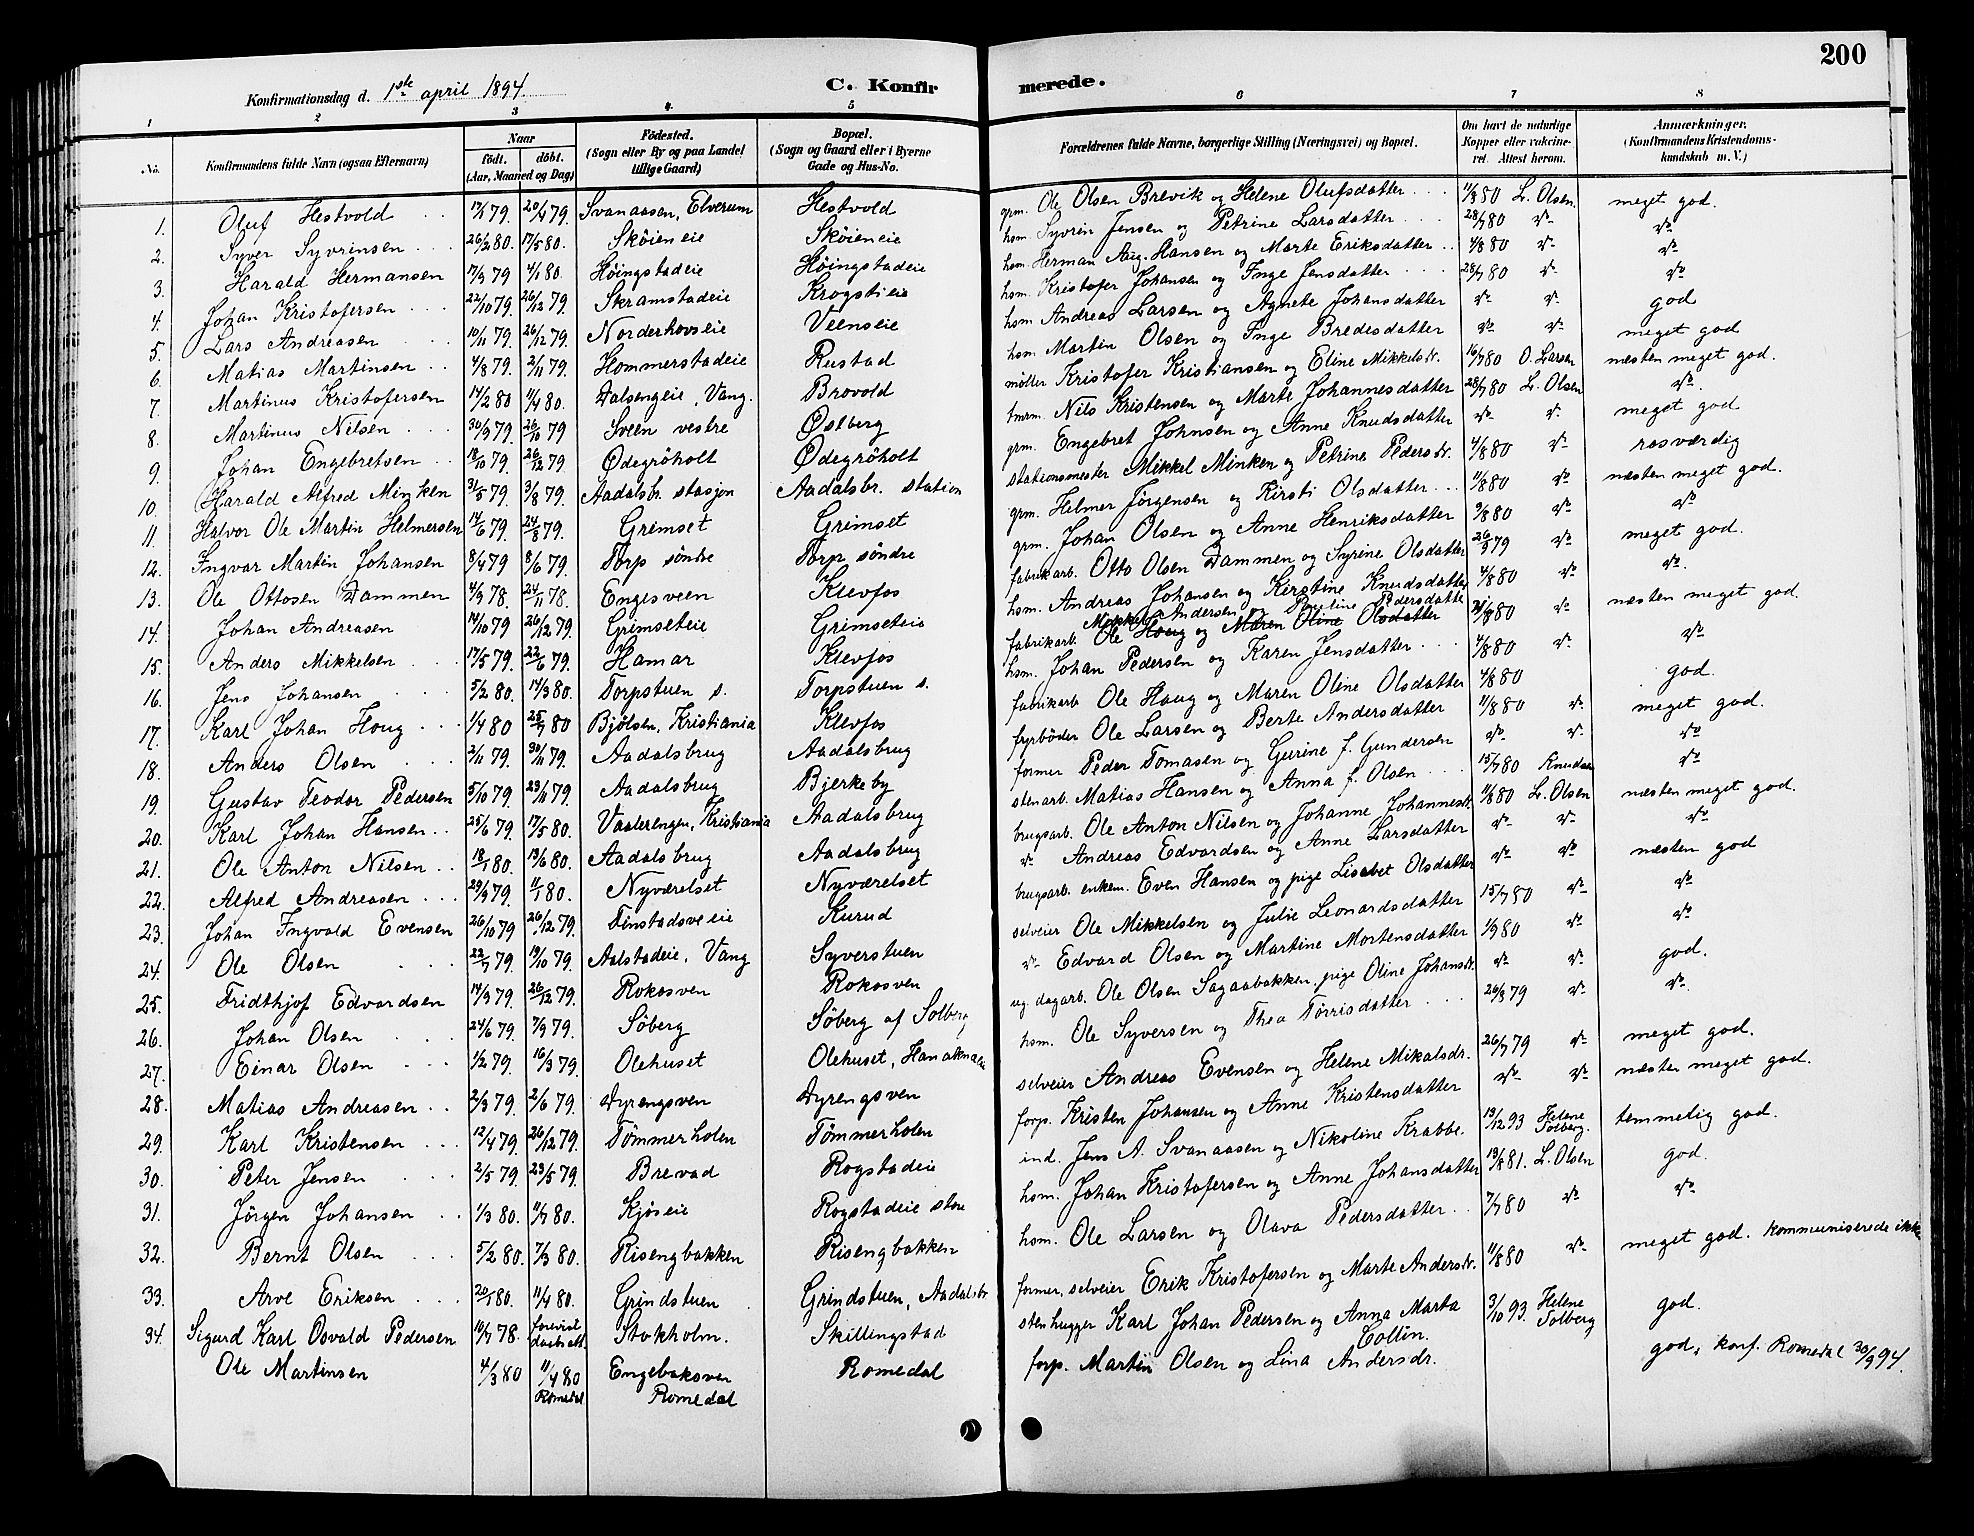 200
Konfirmationsdag d. 1ste april 1894.
C. Konfirmerede.
1 2 3 4 5 6 7 8
No. Konfirmandens fulde Navn (ogsaa Efternavn) Naar født. døbt. (Aar, Maaned og Dag) Fødested. (Sogn eller By og paa Landet tillige Gaard) Bopæl. (Sogn og Gaard eller i Byerne Gade og Hus-No. Forældrenes fulde Navne, borgerlige Stilling (Næringsvei) og Bopæl. Om havt de naturlige Kopper eller vakcineret. Attest herom. Anmærkninger. (Konfirmandens Kristendomskundskab m. V.)
1. Oluf Hestvold 17/1 79. 20/4 79. Svanaasen, Elverum Hestvold grm. Ole Olsen Brevik og Helene Olufsdatter 11/8 80 L. Olsen meget god.
2. Syver Syvrinsen 26/2 80. 17/5 80. Skøieneie Skøieneie hsm. Syvrin Jensen og Petrine Larsdatter 28/7 80 do do
3. Harald Hermansen 17/9 79 4/1 80. Høingstadeie Høingstadeie hsm. Herman Aug. Hansen og Marte Eriksdatter 4/8 80 do do
4. Johan Kristofersen 22/10 79. 26/12 79. Skramstadeie Krogstieie hsm. Kristofer Johansen og Inge Jensdatter 28/7 80 do do
5. Lars Andreasen 10/11 79. 26/12 79. Norderhovseie Veenseie hsm Andreas Larsen og Agnete Johansdatter do do god
6. Matias Martinsen 4/8 79. 2/11 79. Hommerstadeie Rustad hsm. Martin Olsen og Inge Bredesdatter do do meget god
7. Martinus Kristofersen 14/2 80 11/4 80. Dalsengeie, Vang. Brovold møller Kristofer Kristiansen og Eline Mikkelsdr. 16/7 80 O. Larsen næsten meget god.
8. Martinus Nilsen 30/9 79. 26/10 79 Sveen vestre Østberg tmrm. Nils Kristensen og Marte Johannesdatter 28/7 80 L. Olsen do
9. Johan Engebretsen 18/10 79. 26/12 79. Ødegrøholt Ødegrøholt grm. Engebret Johnsen og Anne Knudsdatter do do meget god
10. Harald Alfred Minken 31/5 79. 3/8 79. Aadalsbr. stasjon Aadalsbr. station stationsmester Mikkel Minken og Petrine Pedersdr. 4/8 80 do rosværdig
11. Halvor Ole Martin Helmersen 14/6 79. 24/8 79. Grimset Grimset grm. Helmer Jørgensen og Kirsti Olsdatter 11/8 80 do næsten meget god.
12. Ingvar Martin Johansen 8/4 79 8/6 79. Torp søndre Torp søndre grm. Johan Olsen og Anne Henriksdatter 9/8 80 do do
13. Ole Ottosen Dammen 4/9 78. 24/11 78. Engesveen Klevfos fabrikarb. Otto Olsen Dammen og Syrine Olsdatter 26/9 79 do meget god.
14. Johan Andreasen 14/10 79 26/12 79. Grimseteie Grimseteie hsm. Andreas Johansen og Kirstine Knudsdatter 4/8 80 do do
15. Anders Mikkelsen 17/5 79. 22/6 79. Hamar Klevfos fabrikarb. Mikkel Andersen og Pedersdatter Ole Houg og Maren Oline Olsdatter 80 do næsten meget god.
16. Jens Johansen 5/2 80. 14/3 80. Torpstuen s. Torpstuen s. hsm. Johan Pedersen og Karen Jensdatter 4/8 80 do do
17. Karl Johan Houg 1/4 80 25/7 80 Bjølsen, Kristiania Klevfos fabrikarb Ole Houg og Maren Oline Olsdatter 4/8 80 god.
18. Anders Olsen 2/11 79. 30/11 79. Aadalsbrug Aadalsbrug fyrbøder Ole Larsen og Berte Andersdatter 11/8 80 do meget god.
19. Gustav Teodor Pedersen 5/10 79. 23/11 79. Aadalsbrug Bjerkeby former Peder Tomasen og Gurine f. Gundersen do do do
20. Karl Johan Hansen 25/6 79. 17/5 80. Vaalerengen, Kristiania Aadalsbrug stenarb. Matias Hansen og Anna f. Olsen 15/7 80 Knudsen do
21. Ole Anton Nilsen 18/1 80. 13/6 80. Aadalsbrug Aadalsbrug brugsarb. Ole Anton Nilsen og Johanne Johannesdr. 11/8 80 L. Olsen næsten meget god.
22. Alfred Andreasen 29/9 79. 11/1 80. Nyværelset Nyværelset do Andreas Edvardsen og Anne Larsdatter do do do
23. Johan Ingvald Evensen 26/10 79 26/12 79. Finstadsveie Kurud brugsarb. enkem. Even Hansen og pige Lisabet Olsdatter do do næsten god
24. Ole Olsen 22/7 79. 19/10 79. Aalstadeie, Vang Syverstuen selveier Ole Mikkelsen og Julie Leonardsdatter 15/7 80 do do
25. Fridthjof Edvardsen 14/3 79. 26/12 79. Rokosven Rokosven do Edvard Olsen og Martine Mortensdatter 1/9 80 do do
26. Johan Olsen 24/6 79. 7/9 79. Søberg Søberg af Solberg ug. dagarb. Ole Olsen Sagaabakken, pige Oline Johansdr. do do god.
27. Einar Olsen 1/2 79. 16/3 79. Olehuset Olehuset, hsm. Ole Syversen og Thea Tørrisdatter 26/8 79 do do
28. Matias Andreasen 2/3 79. 2/6 79. Dyrengsven Dyrengsven selveier Andreas Evensen og Helene Mikalsdr. 26/7 79 do meget god.
29. Karl Kristensen 12/4 79. 26/12 79. Tømmerholen Tømmerholen forp. Kristen Johansen og Anne Kristensdatter do do næsten meget god.
30. Peter Jensen 2/5 79. 23/5 79. Brevad Rogstadeie ind. Jens A. Svanaasen og Nikoline Krabbe. 19/12 93 Helene Solberg. temmelig god.
31. Jörgen Johansen 1/3 80. 11/7 80. Kjøseie Rogstadeie store hsm. Johan Kristofersen og Anne Johansdatter 19/8 81. L. Olsen god.
32. Bernt Olsen 5/2 80. 7/3 80. Risengbakken Risengbakken hsm. Ole Larsen og Olava Pedersdatter 7/7 80 do do
33. Arve Eriksen 20/1 80. 11/4 80. Grindstuen Grindstuen, Aadalsbr former, selveier Erik Kristofersen og Marte Andersdr. 11/8 80 do meget god. kommuniserede ikke
34. Sigurd Karl Osvald Pedersen 16/7 78. forevist daabsatt. Stokholm. Skillingstad stenhugger Karl Johan Pedersen og Anna Marta Collin. 3/10 93. Helene Solberg god.
Ole Martinsen 4/3 80 11/4 80 Romedal Engebaksven Romedal Romedal forp. Martin Olsen og Lina Andersdr. god, konf. Romedal 30/9 94.